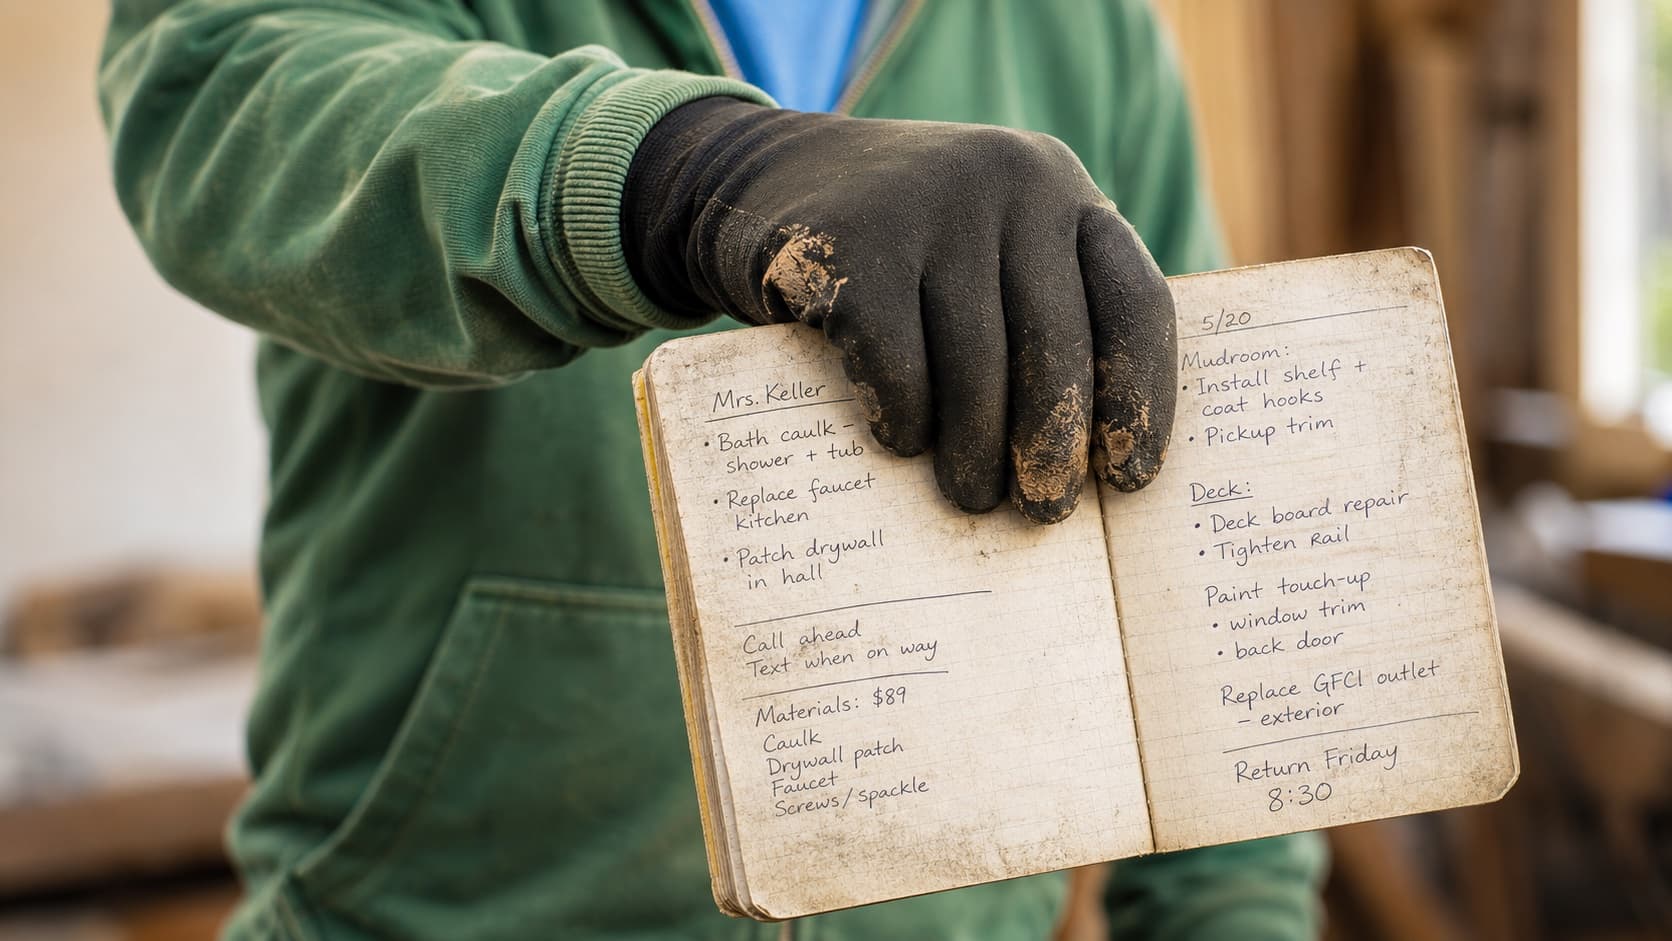 Mrs. Keller
• Bath caulk –
shower + tub
• Replace faucet
kitchen
• Patch drywall
in hall
Call ahead
Text when on way
Materials: $89
Caulk
Drywall patch
Faucet
Screws/spackle
5/20
Mudroom:
• Install shelf +
coat hooks
• Pickup trim
Deck:
• Deck board repair
• Tighten Rail
Paint touch-up
• window trim
• back door
Replace GFCI outlet
– exterior
Return Friday
8:30